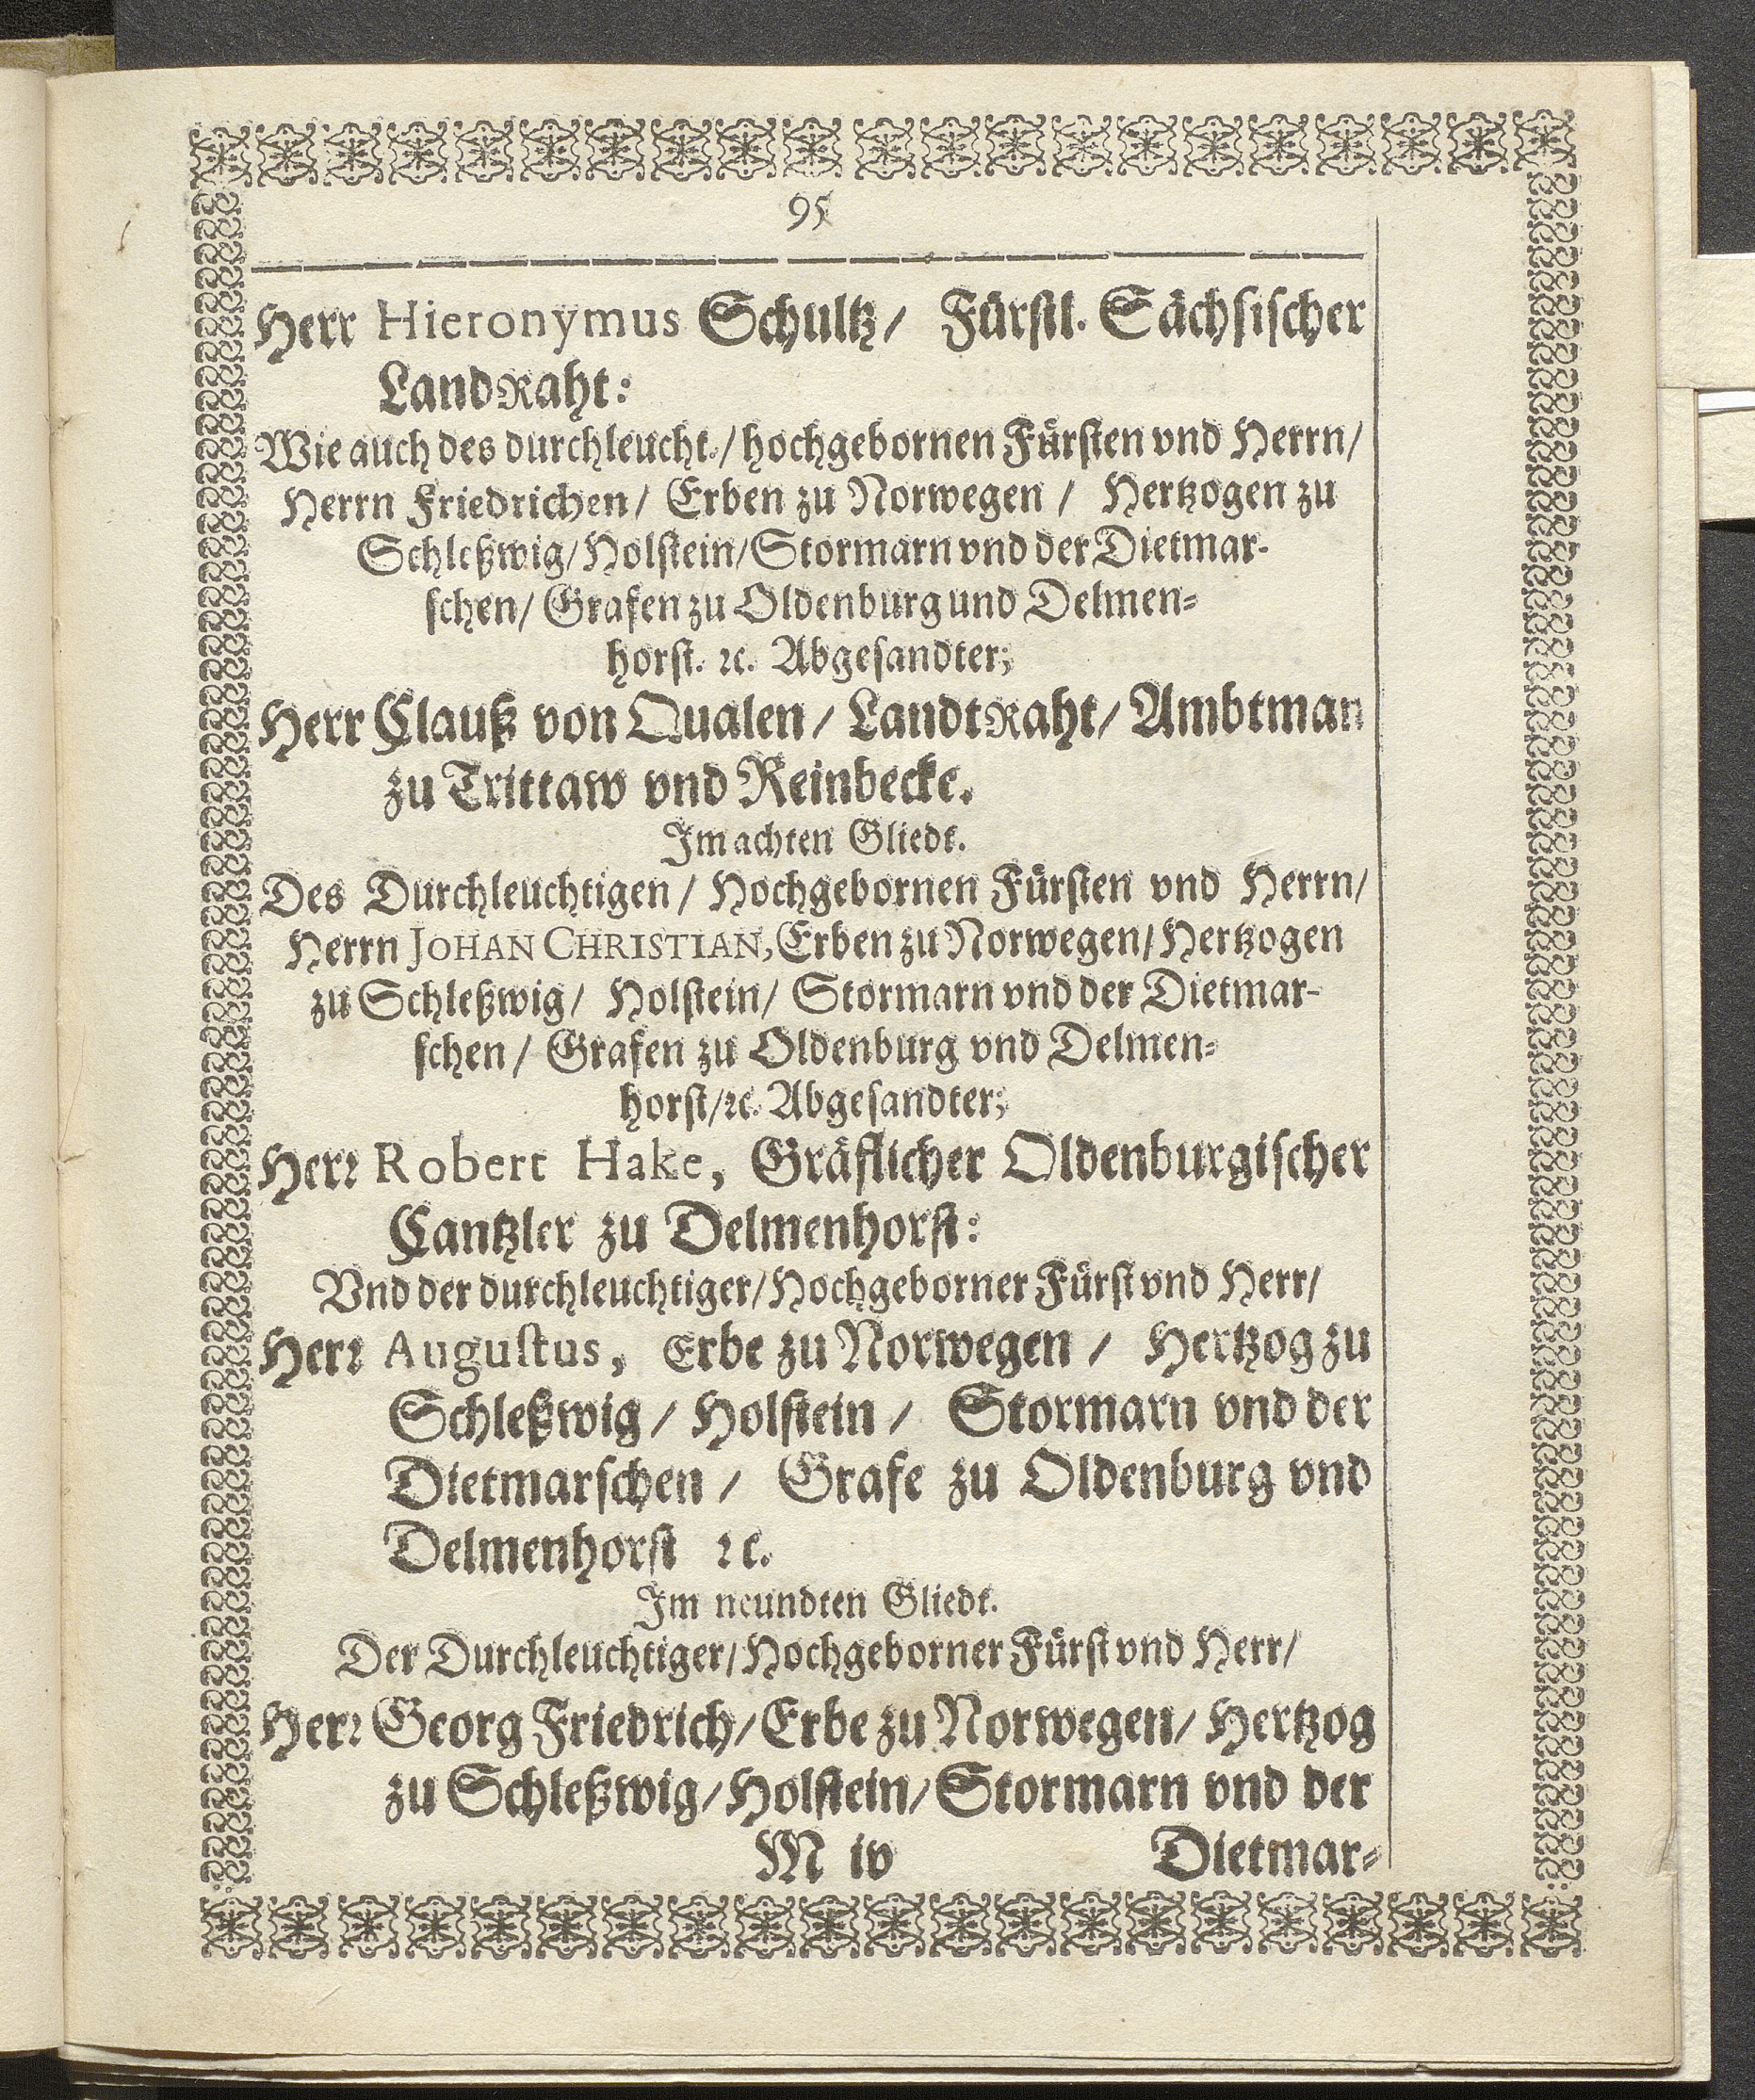 95
Herr Hieronymus Schultz/ Fürstl. Sächsischer
LandRaht:
Wie auch des durchleucht./ hochgebornen Fürsten vnd Herrn/
Herrn Friedrichen/ Erben zu Norwegen/ Hertzogen zu
Schleßwig/ Holstein/ Stormarn vnd der Dietmar-
schen/ Grafen zu Oldenburg und Delmen-
horst. ꝛc. Abgesandter;
Herr Clauß von Qualen/ LandtRaht/ Ambtman
zu Trittaw vnd Reinbecke.
Im achten Gliedt.
Des Durchleuchtigen/ Hochgebornen Fürsten vnd Herrn/
Herrn JOHAN CHRISTIAN, Erben zu Norwegen/ Hertzogen
zu Schleßwig/ Holstein/ Stormarn vnd der Dietmar-
schen/ Grafen zu Oldenburg vnd Delmen-
horst/ ꝛc. Abgesandter;
Herꝛ Robert Hake, Gräflicher Oldenburgischer
Cantzler zu Delmenhorst:
Vnd der durchleuchtiger/ Hochgeborner Fürst vnd Herr/
Herꝛ Augustus, Erbe zu Norwegen/ Hertzog zu
Schleßwig/ Holstein/ Stormarn vnd der
Dietmarschen/ Grafe zu Oldenburg vnd
Delmenhorst ꝛc.
Im neundten Gliedt.
Der Durchleuchtiger/ Hochgeborner Fürst vnd Herr/
Herꝛ Georg Friedrich/ Erbe zu Norwegen/ Hertzog
zu Schleßwig/ Holstein/ Stormarn vnd der
M iv Dietmar-